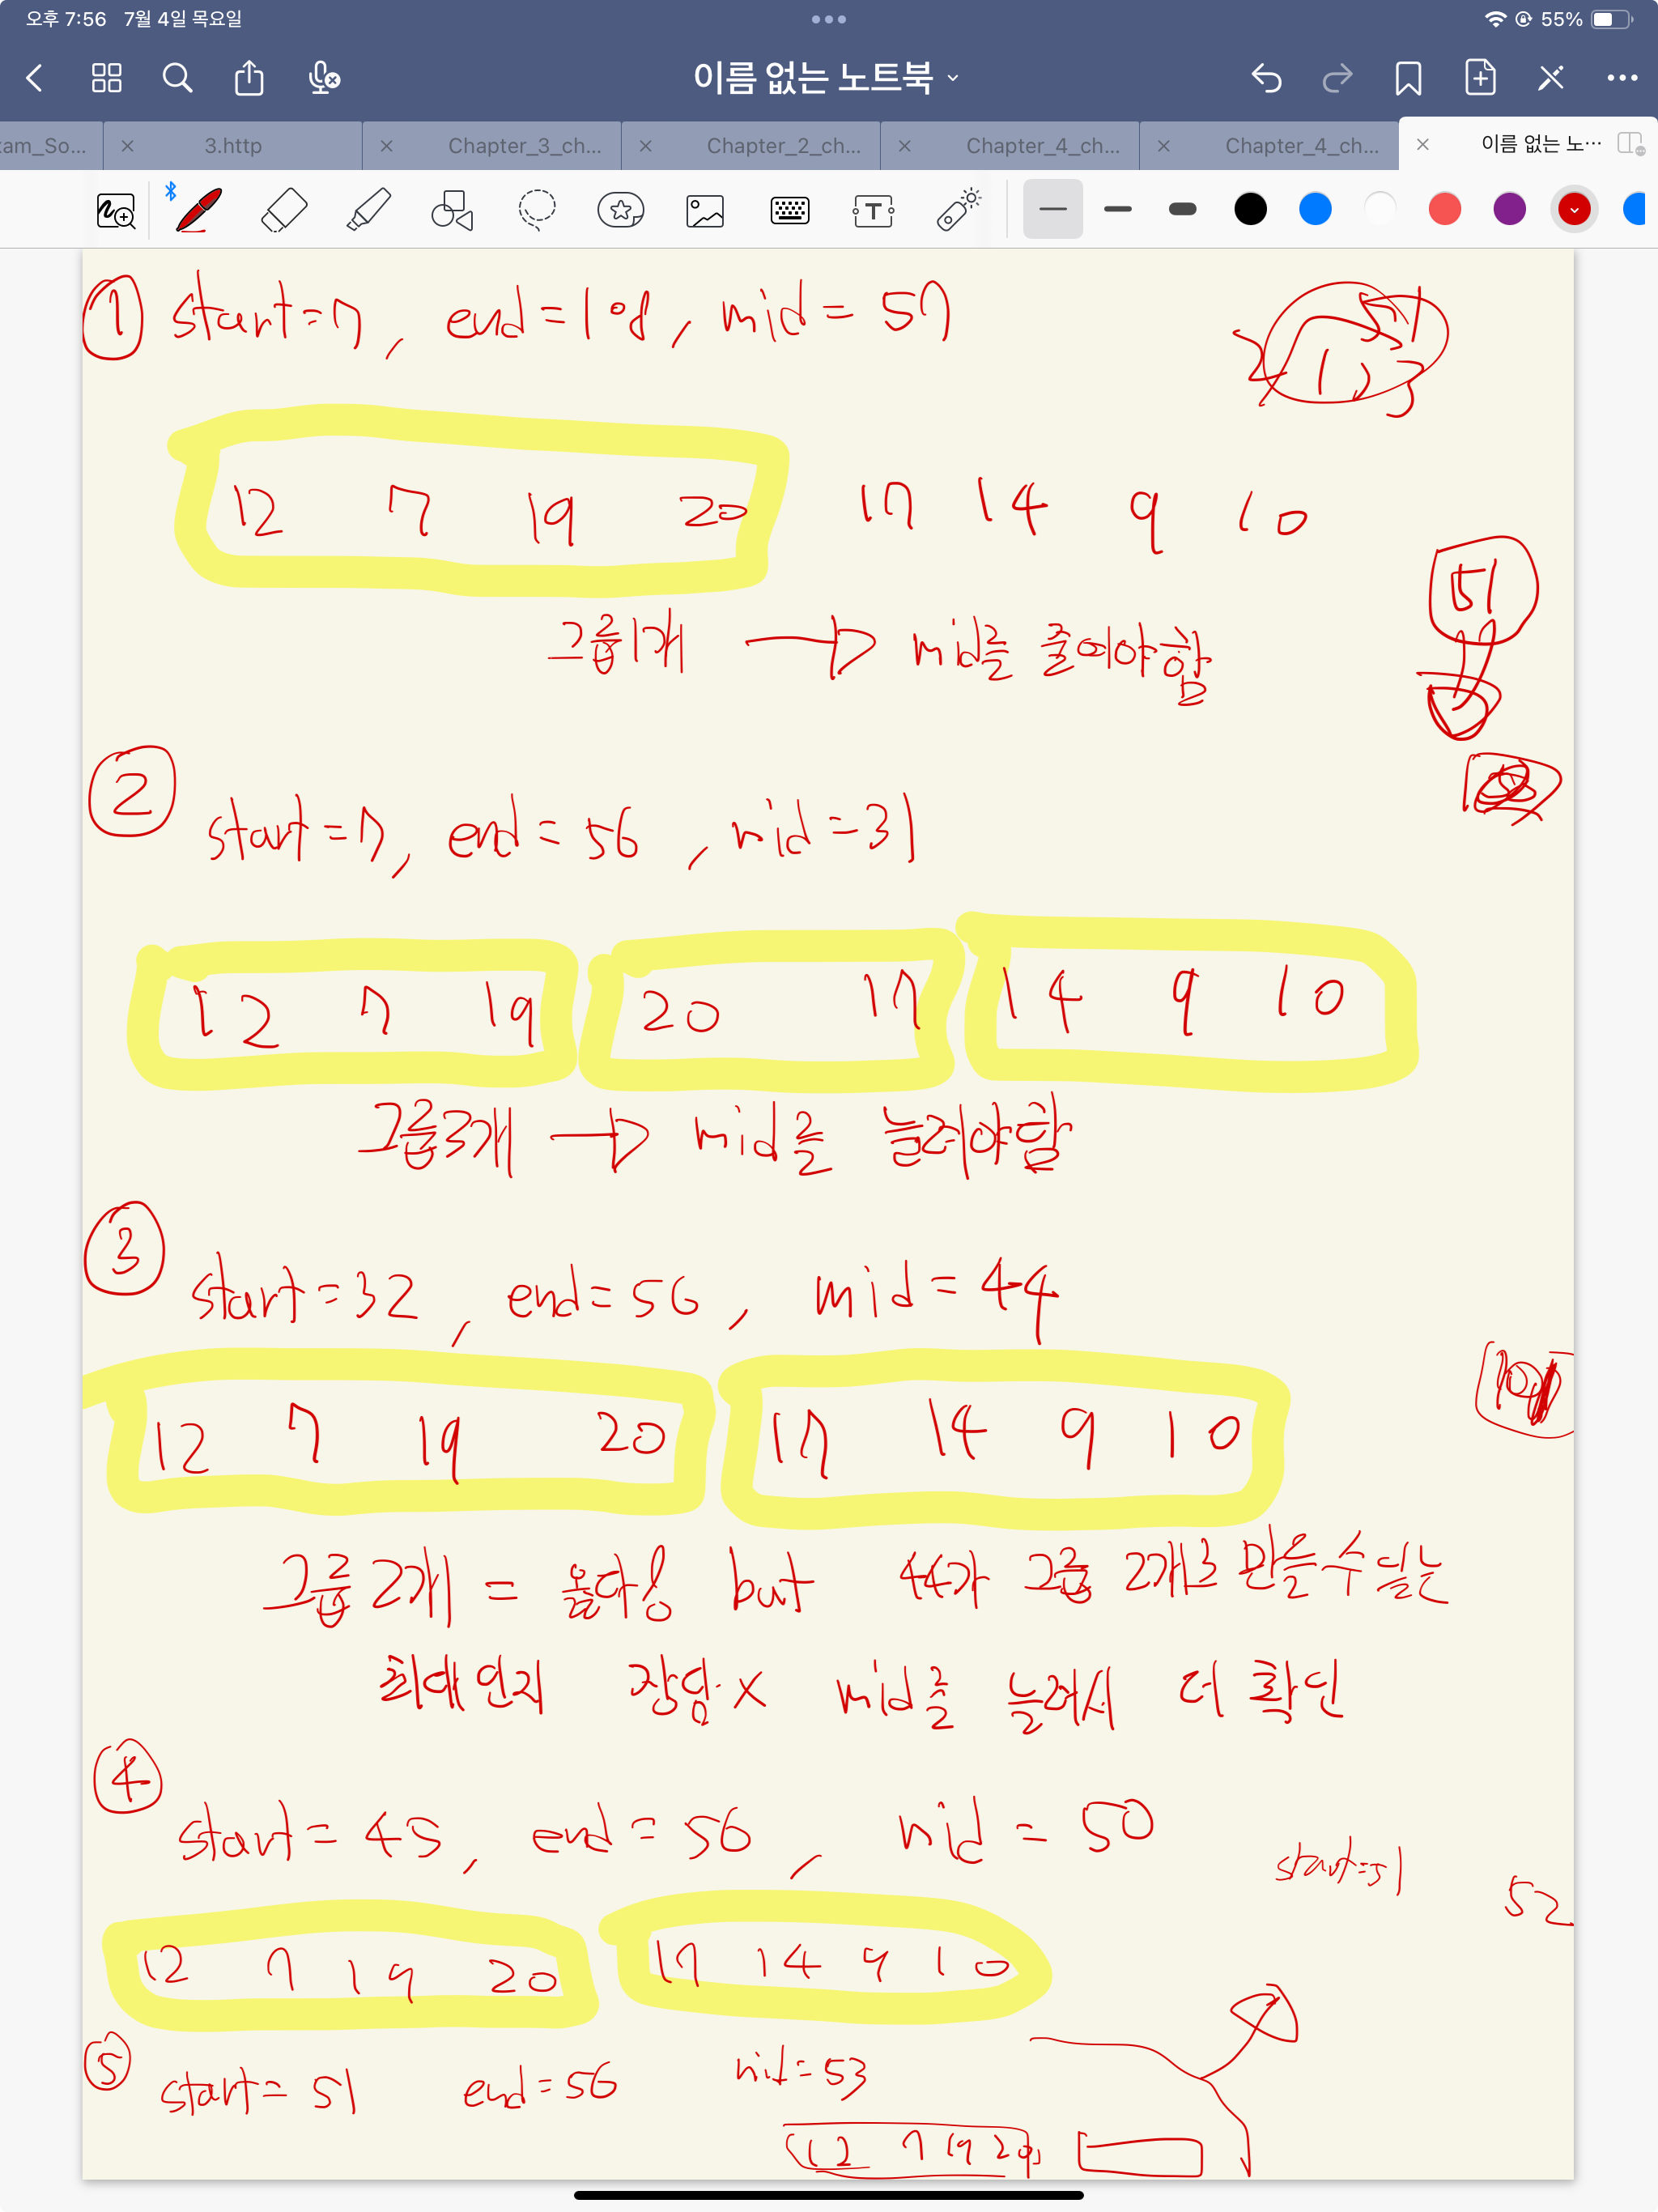 오후 7:56 7월 4일 목요일
55%
이름 없는 노트북
am_So...
3.http
Chapter_3_ch...
Chapter_2_ch...
Chapter_4_ch...
Chapter_4_ch...
이름 없는 노...
① start=7, end=108, mid=57
12 7 19 20 17 14 9 10
51
그룹1개 → mid를 줄여야함
② start=7, end=56, mid=31
12 7 19 20 17 14 9 10
그룹3개 → mid를 늘려야함
③ start=32, end=56, mid=44
12 7 19 20 17 14 9 10
그룹 2개 = 옳아! but 44가 그룹 2개로 만들 수 있는
최대인지 장담 X mid를 늘려서 더 확인
④ start=45, end=56, mid=50
start=51
52
12 7 19 20 17 14 9 10
⑤ start=51 end=56 mid=53
12 7 19 20